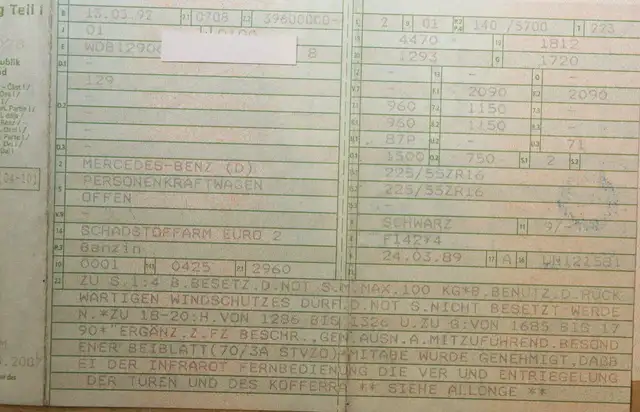 g Teil I
B 13.03.92 2.1 0708 2.2 39600000-
J 01
E WDB12906 8
D.1 -
129
D.2 -
-
D.3 -
2 MERCEDES-BENZ (D)
5 PERSONENKRAFTWAGEN
OFFEN
V.9 -
14 SCHADSTOFFARM EURO 2
P.3 Benzin
10 0001 14.1 0425 P.1 2960
L 2 9 01 P.2/P.4 140 /5700 T 223
18 4470 - 19 1812
20 1293 G 1720
12 - 13 - Q -
V.7 - F.1 2090 F.2 2090
7.1 960 7.2 1150 7.3 -
8.1 960 8.2 1150 8.3 -
U.1 87P U.2 - U.3 71
O.1 1500 O.2 750 S.1 2 S.2 -
15.1 225/55ZR16
15.2 225/55ZR16
15.3 -
R SCHWARZ 11 9/-
K F142*4
6 24.03.89 17 A 16
22 ZU S.1:4 B.BESETZ.D.NOT S.M.MAX.100 KG*B.BENUTZ.D.RUCK
WARTIGEN WINDSCHUTZES DURF.D.NOT S.NICHT BESETZT WERDE
N.*ZU 18-20:H.VON 1286 BIS 1326 U.ZU G:VON 1685 BIS 17
90*"ERGANZ.Z.FZ BESCHR.,GEN.AUSN.A.MITZUFUHREND.BESOND
ENER BEIBLATT(70/3A STVZO)*MITABE WURDE GENEHMIGT,DABB
EI DER INFRAROT FERNBEDIENUNG DIE VER UND ENTRIEGELUNG
DER TUREN UND DES KOFFERRA ** SIEHE ALLONGE **